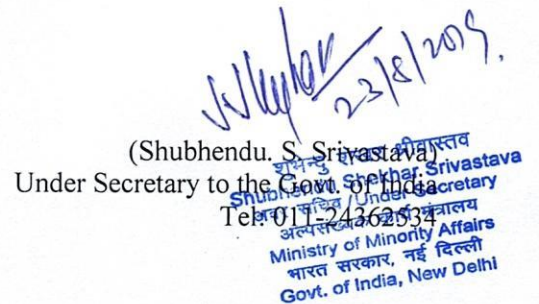 23/8/2019.
(Shubhendu. S. Srivastava)
Under Secretary to the Govt. of India
Tel: 011-24362534
शुभेन्दु शेखर श्रीवास्तव
Shubhendu Shekhar Srivastava
अवर सचिव /Under Secretary
अल्पसंख्यक कार्य मंत्रालय
Ministry of Minority Affairs
भारत सरकार, नई दिल्ली
Govt. of India, New Delhi